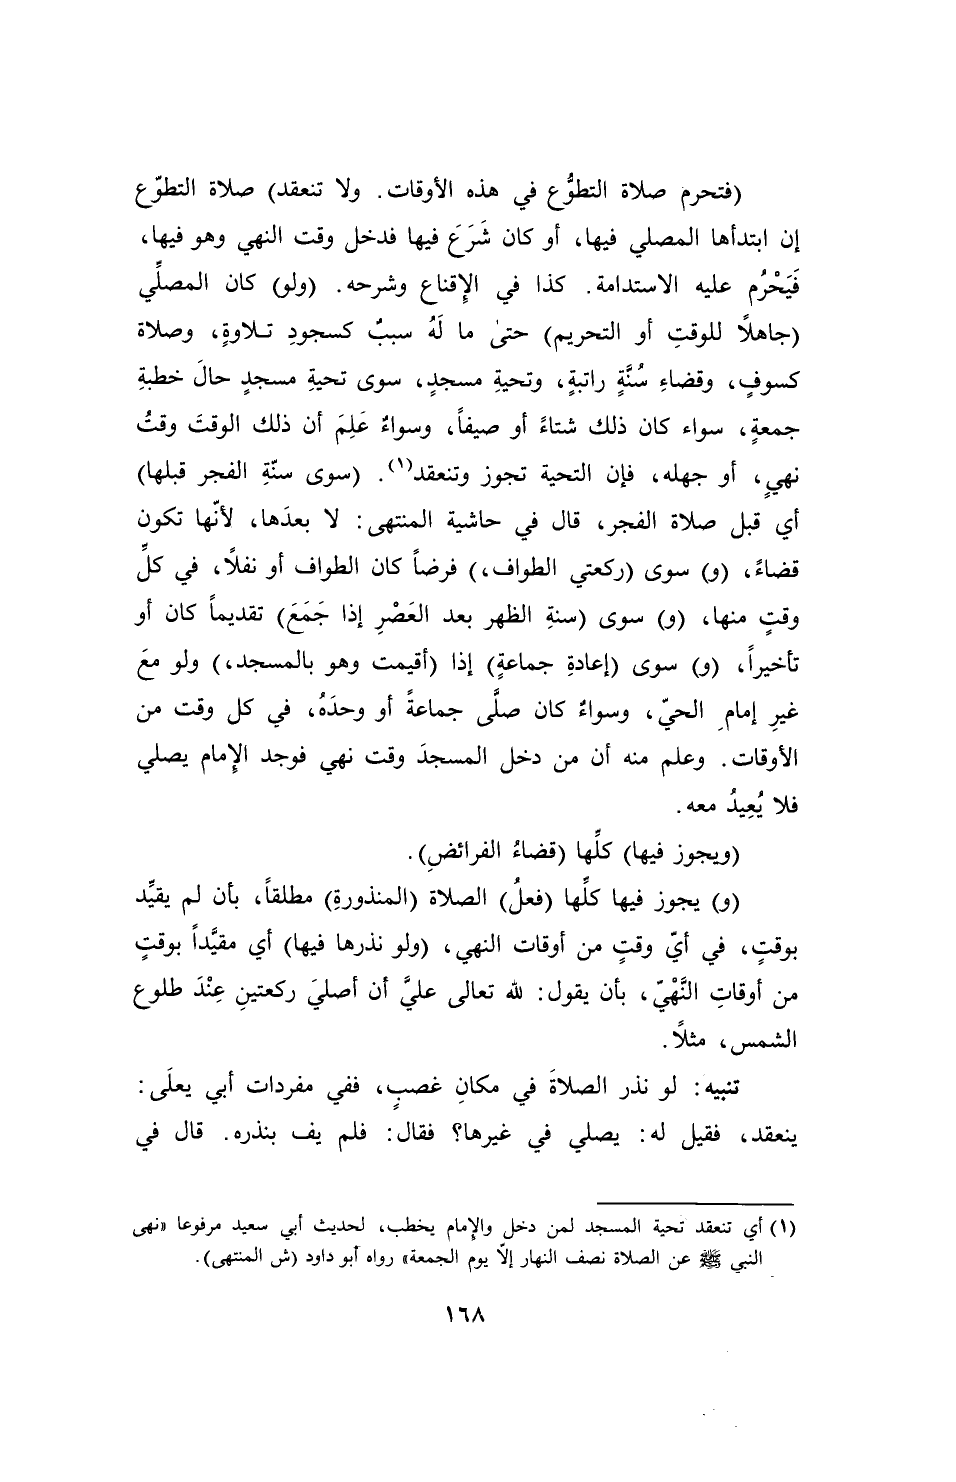 (فتحرم صلاة التطوُّع في هذه الأوقات. ولا تنعقد) صلاة التطوّع
إن ابتدأها المصلي فيها، أو كان شَرَعَ فيها فدخل وقت النهي وهو فيها،
فَيَحْرُم عليه الاستدامة. كذا في الإقناع وشرحه. (ولو) كان المصلِّي
(جاهلاً للوقتِ أو التحريم) حتىٰ ما لَهُ سببٌ كسجودِ تلاوةٍ، وصلاة
كسوفٍ، وقضاءِ سُنَّةٍ راتبةٍ، وتحيةِ مسجدٍ، سوى تحيةِ مسجدٍ حالَ خطبةِ
جمعةٍ، سواء كان ذلك شتاءً أو صيفاً، وسواءٌ عَلِمَ أن ذلك الوقتَ وقتُ
نهيٍ، أو جهله، فإن التحية تجوز وتنعقد(١). (سوى سنّةِ الفجر قبلها)
أي قبل صلاة الفجر، قال في حاشية المنتهى: لا بعدَها، لأنّها تكون
قضاءً، (و) سوى (ركعتي الطواف،) فرضاً كان الطواف أو نفلًا، في كلِّ
وقتٍ منها، (و) سوى (سنةِ الظهر بعد العَصْرِ إذا جَمَعَ) تقديماً كان أو
تأخيراً، (و) سوى (إعادةِ جماعةٍ) إذا (أقيمت وهو بالمسجد،) ولو معَ
غيرِ إمامِ الحيّ، وسواءٌ كان صلَّى جماعةً أو وحدَهُ، في كل وقت من
الأوقات. وعلم منه أن من دخل المسجدَ وقت نهي فوجد الإمام يصلي
فلا يُعِيدُ معه.
(ويجوز فيها) كلِّها (قضاءُ الفرائضِ).
(و) يجوز فيها كلِّها (فعلُ) الصلاة (المنذورةِ) مطلقاً، بأن لم يقيِّد
بوقتٍ، في أيّ وقتٍ من أوقات النهي، (ولو نذرها فيها) أي مقيَّداً بوقتٍ
من أوقاتِ النَّهْيّ، بأن يقول: لله تعالى عليَّ أن أصليَ ركعتينِ عِنْدَ طلوع
الشمس، مثلًا.
تنبيه: لو نذر الصلاةَ في مكانِ غصبٍ، ففي مفردات أبي يعلَى:
ينعقد، فقيل له: يصلي في غيرها؟ فقال: فلم يف بنذره. قال في
(١) أي تنعقد تحية المسجد لمن دخل والإمام يخطب، لحديث أبي سعيد مرفوعا «نهى
النبي ﷺ عن الصلاة نصف النهار إلّا يوم الجمعة» رواه أبو داود (ش المنتهى).
١٦٨